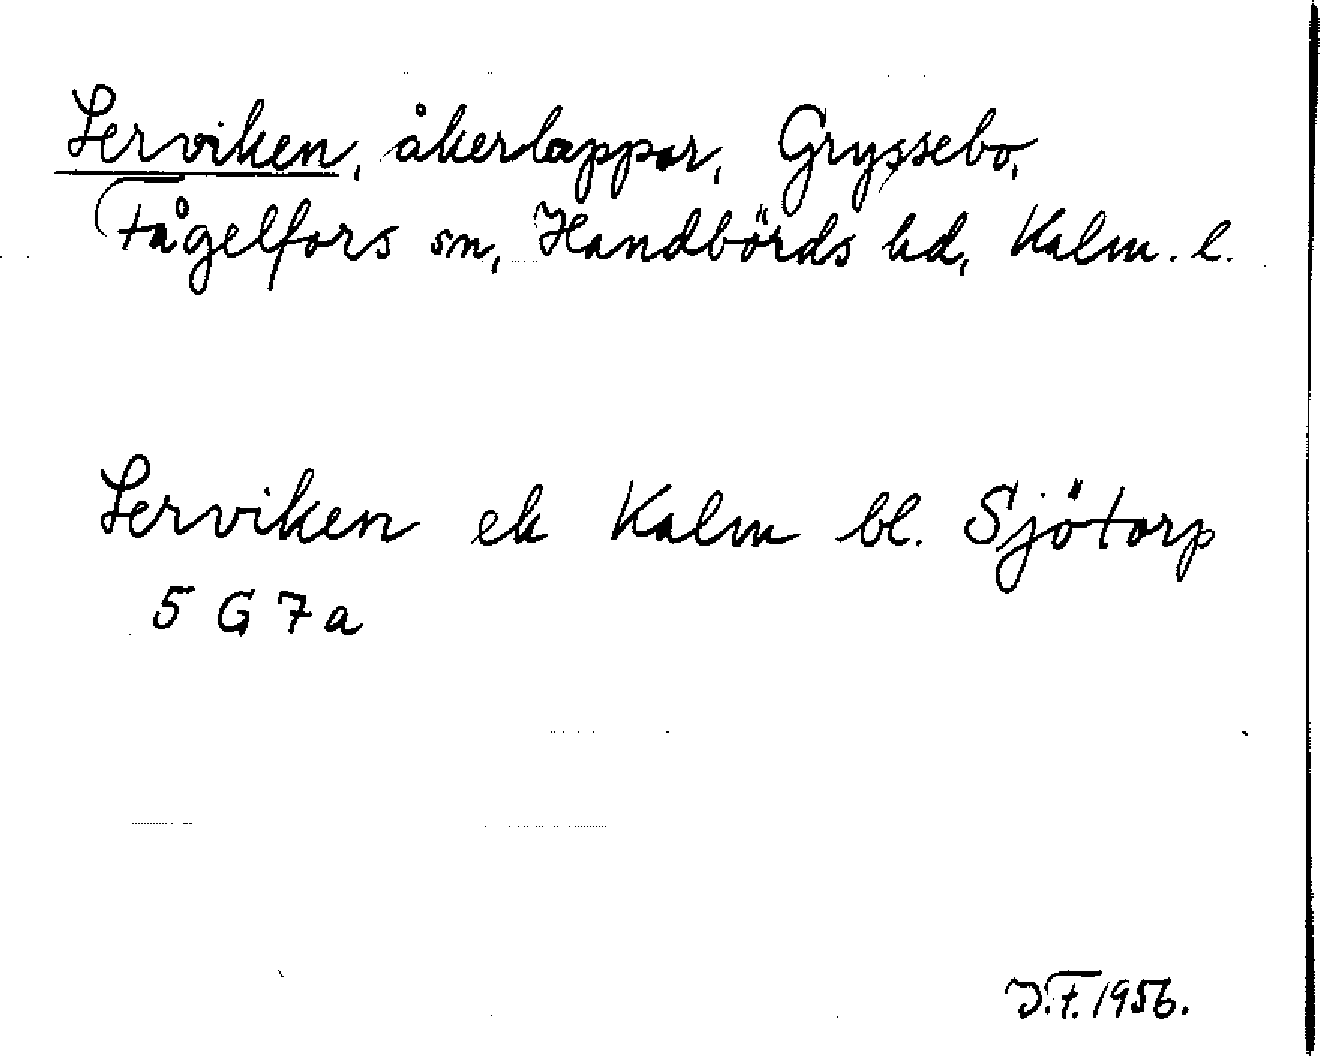 Lerviken, åkerlappar, Gryssebo,
Fågelfors sn, Handbörds hd, Kalm. l.
Lerviken ek Kalm bl. Sjötorp
5 G 7 a
J.F. 1956.